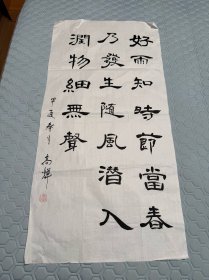 好雨知時節當春
乃發生随風潛入
潤物細無聲